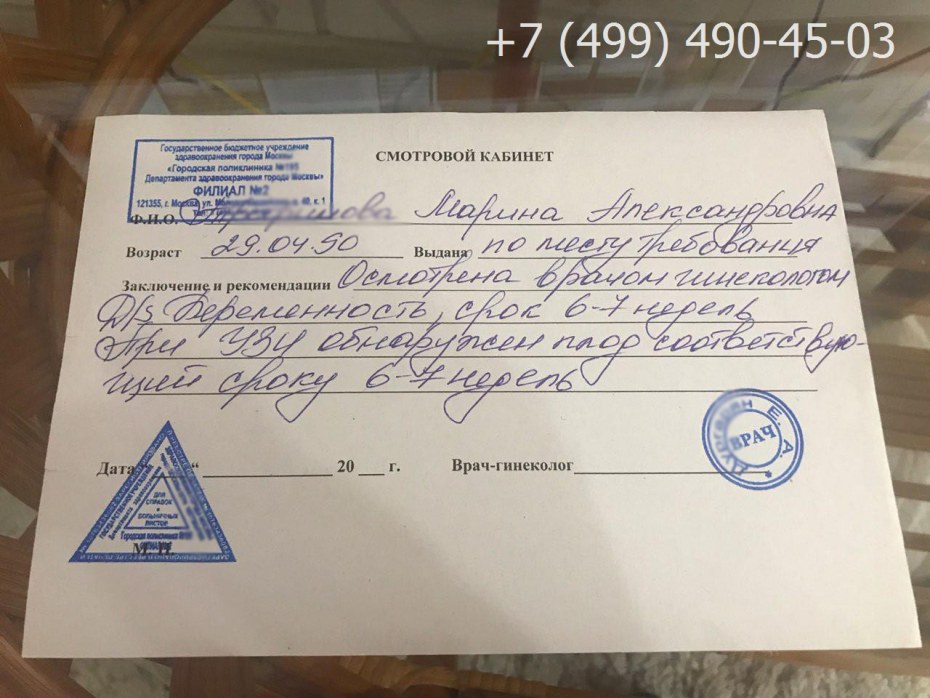 +7 (499) 490-45-03
Государственное бюджетное учреждение
здравоохранения города Москвы
«Городская поликлиника
Департамента здравоохранения города Москвы»
ФИЛИАЛ №2
121355, г. Москва, ул. к. 1
СМОТРОВОЙ КАБИНЕТ
Ф.И.О. Марина Александровна
Возраст 29.04.90 Выдана по месту требования
Заключение и рекомендации Осмотрена врачом гинекологом
D/s Беременность, срок 6-7 недель
При УЗИ обнаружен плод соответствую-
щий сроку 6-7 недель
Дата “ “ 20 г. Врач-гинеколог
Е. А. *
ВРАЧ
ДЛЯ
СПРАВОК
И
БОЛЬНИЧНЫХ
ЛИСТОВ
Городская поликлиника
М. П.